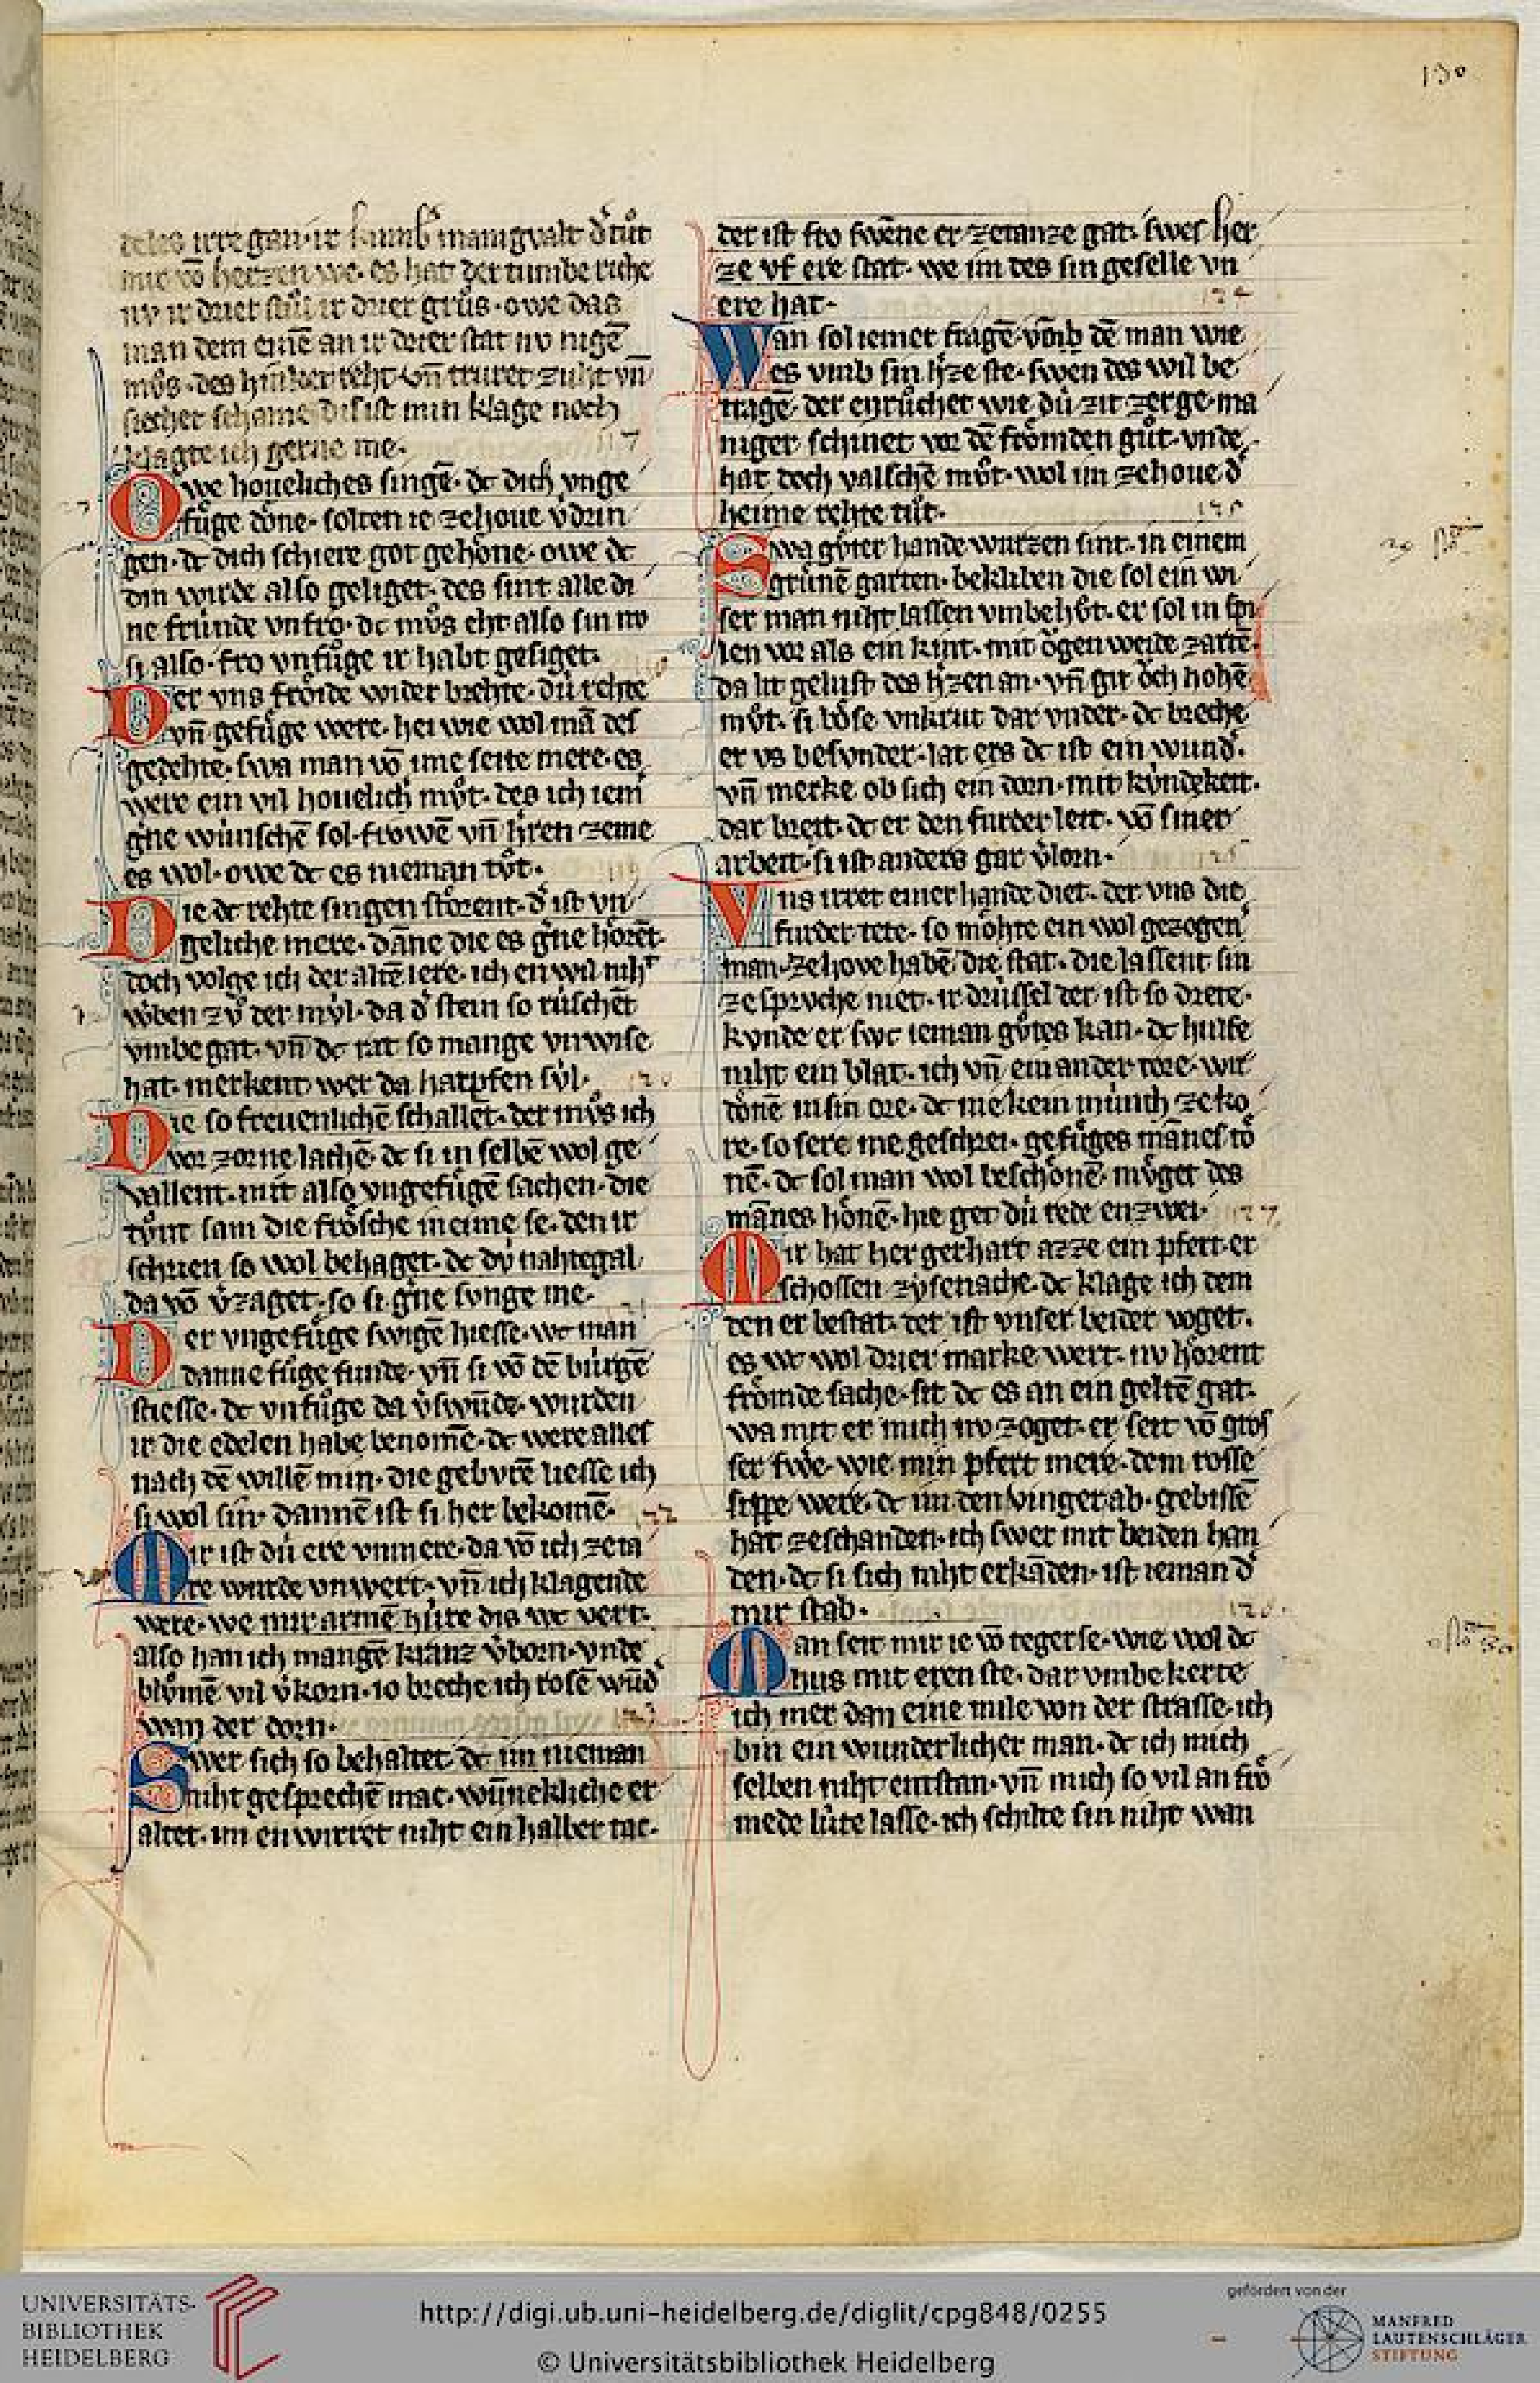 130
teles irre gan· ir kumb᷑ manigvalt d᷑ tůt
mir vō herzen we· es hat der tumbe riche
nv ir drier stůl ir drier grůs· owe das
man dem einē an ir drier stat nv nigē
můs· des hinket reht vn̄ truret zuht vn̄
siechet schame dis ist min klage noch
klagte ich gerne me·
117
Owe houeliches singē· dc dich vnge
fůge dône· solten ie zehoue v᷑drin
gen· dc dich schiere got gehône· owe dc
din wirde also geliget· des sint alle di
ne frúnde vnfro· dc můs eht also sin nv
si also· fro vnfůge ir habt gesiget·
Der vns frôide wider brehte· dú rehte
vn̄ gefůge were· hei wie wol mā des
gedehte· swa man vō ime seite mere· es
were ein vil houelich můt· des ich iem᷑
g᷑ne wúnschē sol· frowē vn̄ h᷑ren zeme
es wol· owe dc es nieman tůt·
119
Die dc rehte singen stôrent· d᷑ ist vn
geliche mere· dāne die es g᷑ne hôrēt·
doch volge ich der altē lere· ich en wil niht
w᷑ben zů der mvl· da d᷑ stein so rúschēt
vmbe gat· vn̄ dc rat so mange vnwise
hat· merkent wer da harpfen sv́l·
120
Die so freuenlichē schallēt· der můs ich
vor zorne lachē· dc si in selbē wol ge
vallent· mit also vngefůgē sachen· die
tůnt sam die frôsche in eime se· den ir
schrien so wol behaget· dc dv́ nahtegal
da vō v᷑zaget· so si g᷑ne svnge me·
121
Der vngefůge swigē hiesse· wc man
danne fůge funde· vn̄ si vō dē búrgē
stiesse· dc vnfůge da v᷑swūde· wurden
ir die edelen habe benomē· dc were alles
nach dē willē min· die gebvrē liesse ich
si wol sin· dannē ist si her bekomē·
122
Mir ist dú ere vnmere· da vō ich zeia
re wurde vnwert· vn̄ ich klagende
were· we mir armē húre dis wc vert·
also han ich mangē kranz v᷑born· vnde
blůmē vil v᷑korn· io breche ich rosē wūd᷑
wan der dorn·
Swer sich so behaltet dc im nieman
niht gesprechē mac· wūnekliche er
altet· im en wirret niht ein halber tac·
der ist fro swēne er zetanze gat· swes her
ze vf ere stat· we im des sin geselle vn
ere hat·
124
Wan sol iemer fragē vōmb dē man wie
es vmb sin h᷑ze ste· swen des wil be
tragē· der enrůchet wie dú zit zerge· ma
niger schinet vor dē frômden gůt· vnde
hat doch valschē můt· wol im zehoue d᷑
heime rehte tůt·
125
Swa gůter hande wurzen sint· in einem
grůnē garten· bekliben die sol ein wi
ser man niht lassen vmbehůt· er sol in spi
len vor als ein kint· mit ôgen weide zartē·
da lit gelust des h᷑zen an· vn̄ git ôch hohē
můt· si bôse vnkrut dar vnder· dc breche
er vs besvnder· lat ers dc ist ein wund᷑·
vn̄ merke ob sich ein dorn· mit kv́ndekeit·
dar breit· dc er den furder leit· vō siner
arbeit· si ist anders gar v᷑lorn·
126
Vns irret einer hande diet· der vns die
furder tete· so môhte ein wol gezogen᷑
man· zehove habē die stat· die lassent sin
ze sprvche niet· ir drússel der ist so drete·
kvnde er swc ieman gůtes kan· dc hulfe
niht ein blat· ich vn̄ ein ander tore· wir
dônē in sin ore· dc nie kein múnch ze ko
re· so sere me geschrei· gefůges mānes dô
nē· dc sol man wol beschônē· mv́ge des
mānes hônē· hie get dú rede enzwei·
127
Mir hat her gerhart azze ein pfert er
schossen zysenache· dc klage ich dem
den er bestat· der ist vnser beider voget·
es wc wol drier marke wert· nv hôrent
frômde sache· sit dc es an ein geltē gat·
wa mit er mich nv zoget· er seit vō gros
ser swe᷑· wie min pfert mere· dem rosse
sippe were· dc im den vinger ab· gebissē
hat zeschanden· ich swer mit beiden han
den· dc si sich niht erkāden· ist ieman d᷑
mir stab·
128
Man seit mir ie vō tegerse· wie wol dc
hus mit eren ste· dar vmbe kerte
ich mer dan eine mile von der strasse· ich
bin ein wunderlicher man· dc ich mich
selben niht entstan· vn̄ mich so vil an frô
mede lúte lasse· ich schilte sin niht wan
UNIVERSITÄTS-
BIBLIOTHEK
HEIDELBERG
http://digi.ub.uni-heidelberg.de/diglit/cpg848/0255
© Universitätsbibliothek Heidelberg
gefördert von der
MANFRED
LAUTENSCHLÄGER
STIFTUNG